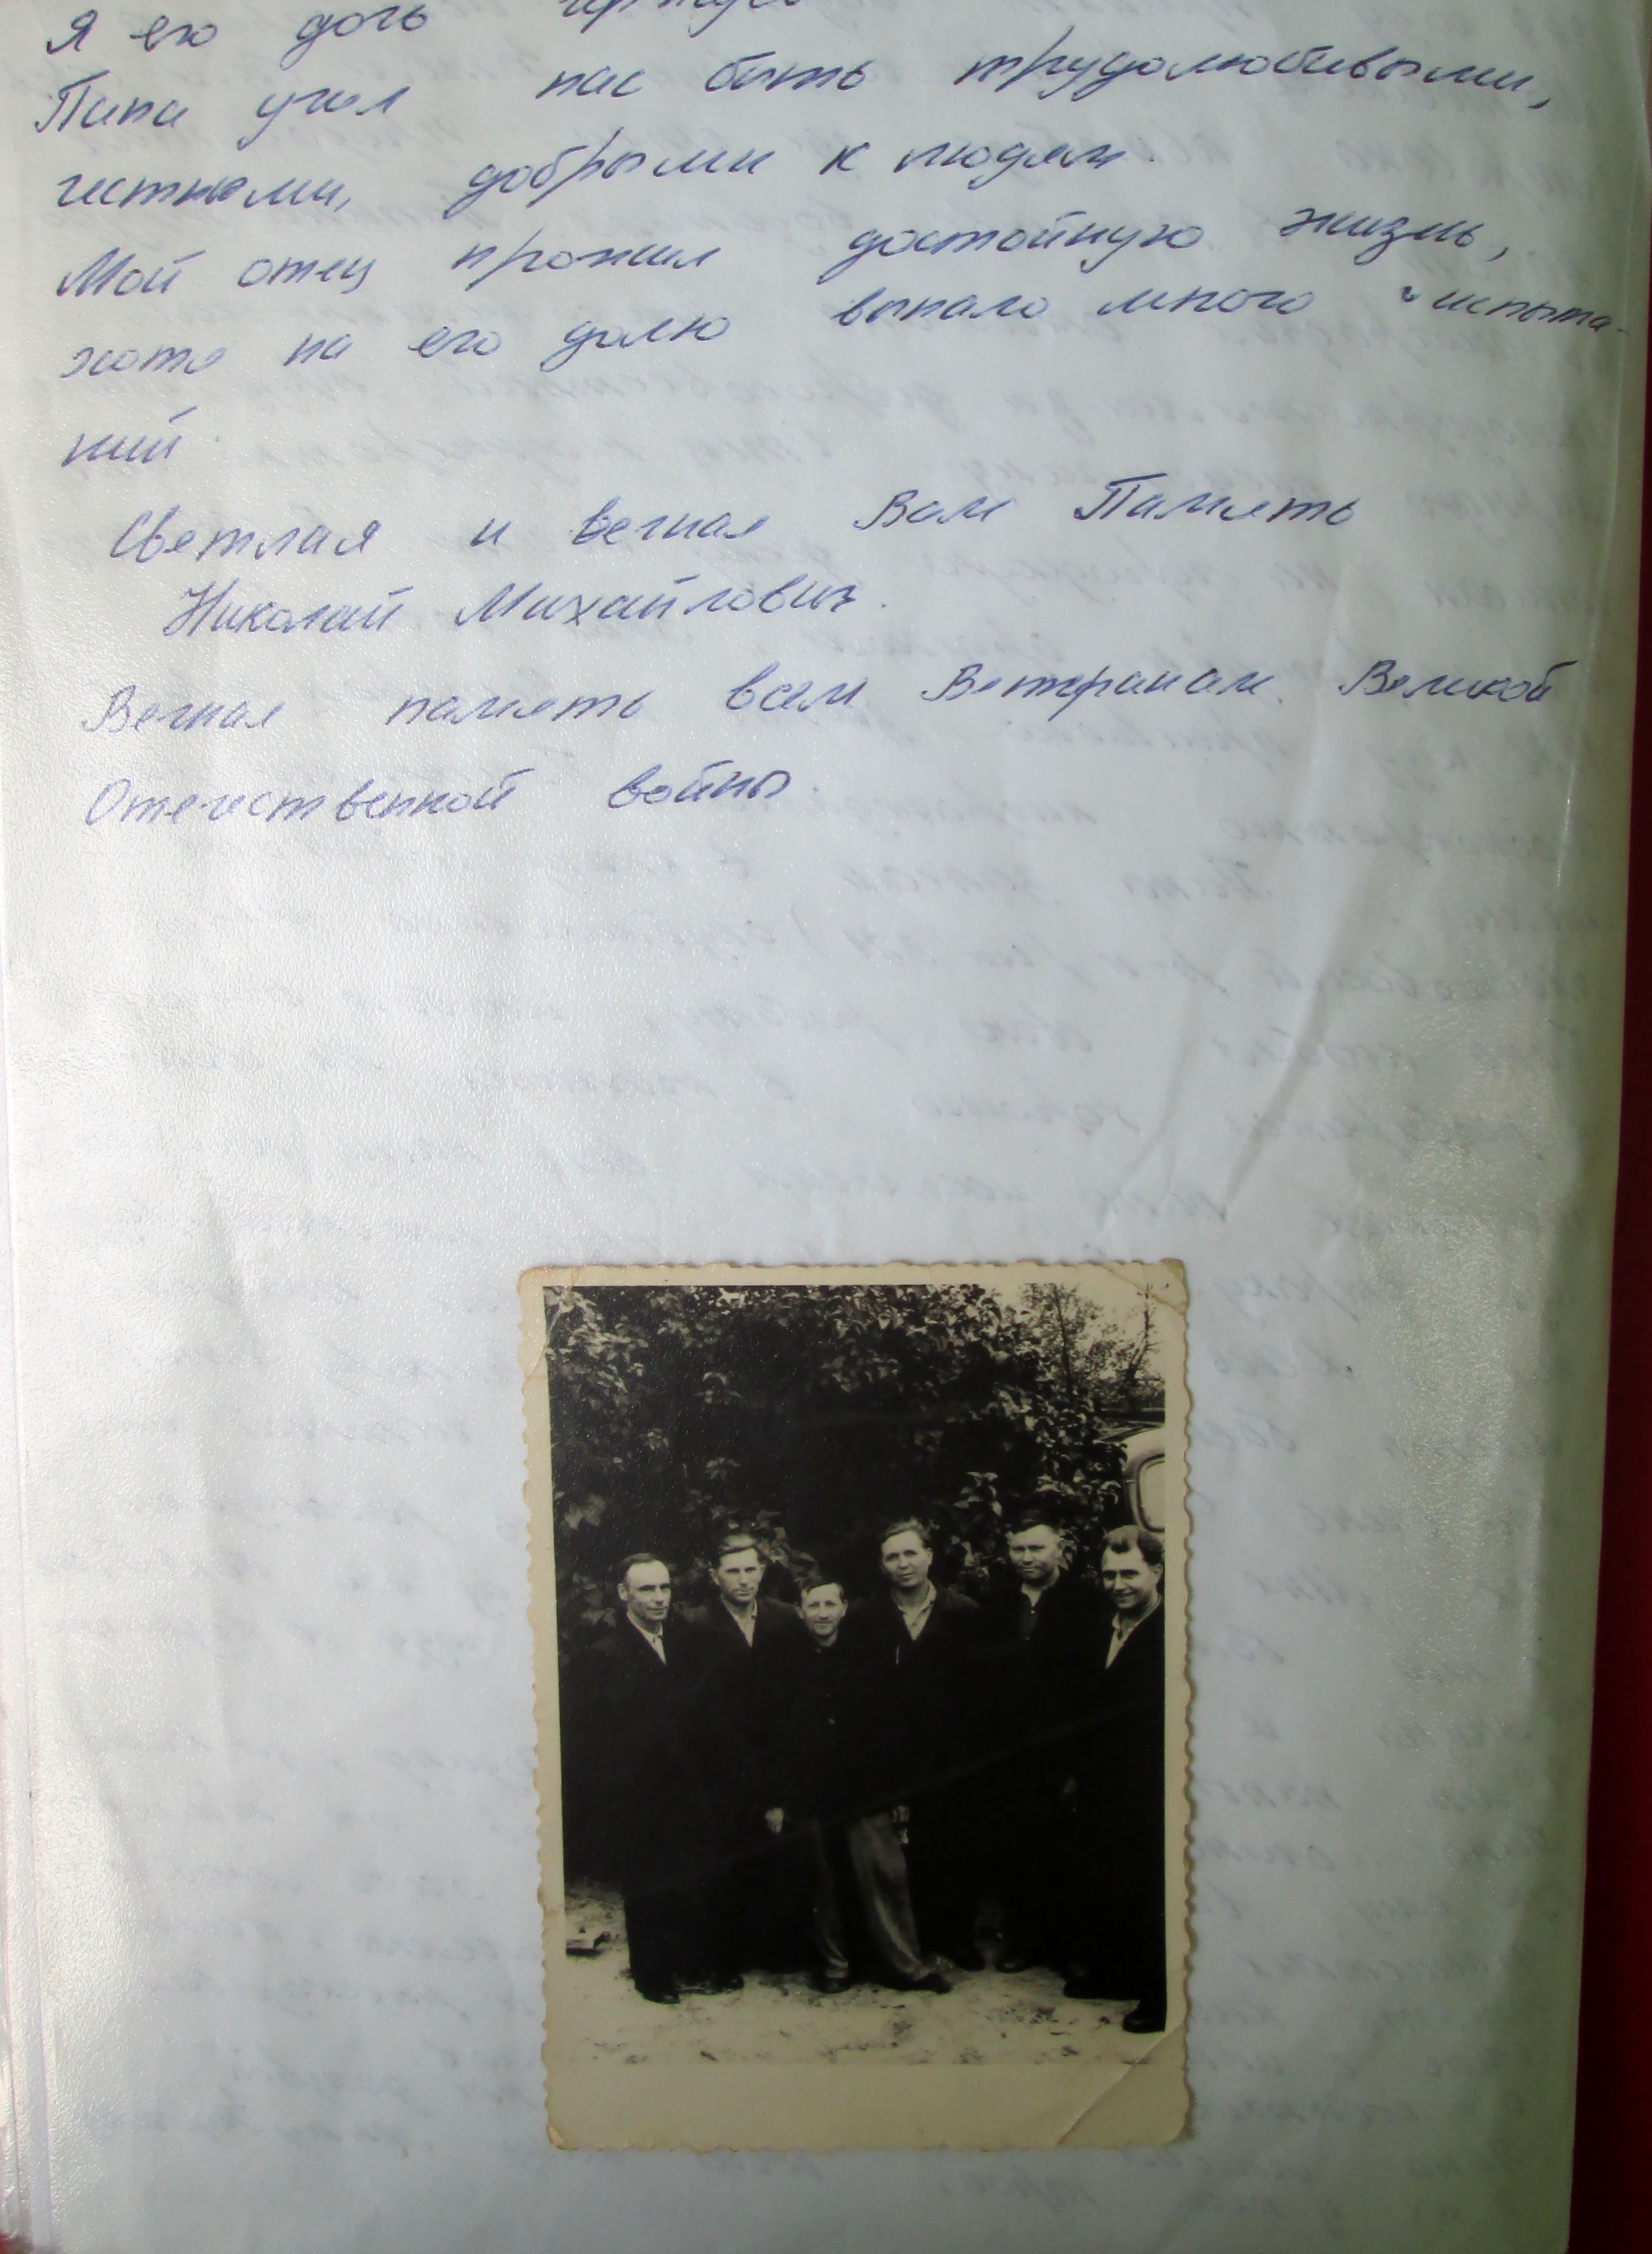 Я его дочь
Папа учил нас быть трудолюбивыми,
честными, добрыми к людям.
Мой отец прожил достойную жизнь,
хотя на его долю выпало много испыта-
ний.
Светлая и вечная Вам Память
Николай Михайлович.
Вечная память всем Ветеранам Великой
Отечественной войны.